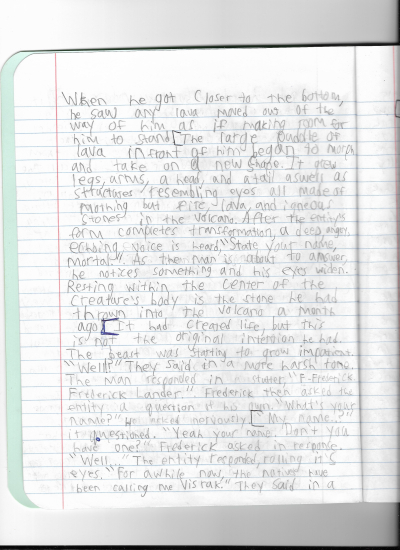 When he got closer to the bottom,
he saw any lava moved out of the
way of him as if making room for
him to stand. The large puddle of
lava infront of him began to morph
and take on a new shape. It grew
legs, arms, a head, and a tail aswell as
structures resembling eyes all made of
nothing but fire, lava, and igneous
stones in the volcano. After the entity's
form completes transformation, a deep anger
echoing voice is heard, "State your name,
mortal." As the man is about to answer,
he notices something and his eyes widen.
Resting within the center of the
creature's body is the stone he had
thrown into the volcano a month
ago. It had created life, but this
is not the original intention he had.
The beast was starting to grow impatient.
"Well?" They said in a more harsh tone.
The man responded in stutter, "F-Frederick
Frederick Lander." Frederick then asked the
entity a question of his own. "What's your
name?" He asked nervously. "My name..."
it questioned. "Yeah your name. Don't you
have one?" Frederick asked in response.
"Well.." The entity responded, rolling it's
eyes. "For awhile now, the natives have
been calling me Vistrak." They said in a